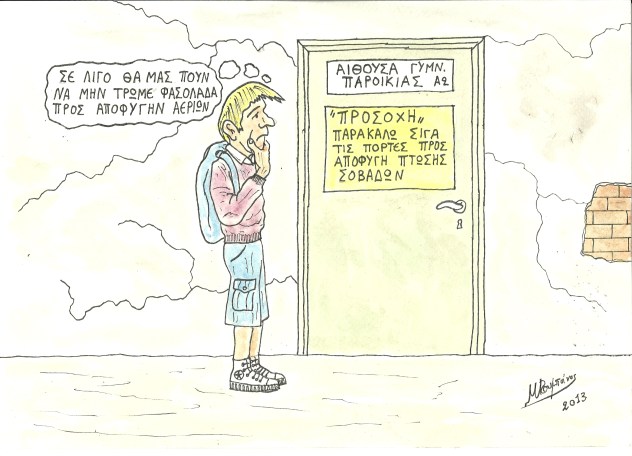 ΣΕ ΛΙΓΟ ΘΑ ΜΑΣ ΠΟΥΝ
ΝΑ ΜΗΝ ΤΡΩΜΕ ΦΑΣΟΛΑΔΑ
ΠΡΟΣ ΑΠΟΦΥΓΗΝ ΑΕΡΙΩΝ
ΑΙΘΟΥΣΑ ΓΥΜΝ.
ΠΑΡΟΙΚΙΑΣ Α2
"ΠΡΟΣΟΧΗ„
ΠΑΡΑΚΑΛΩ ΣΙΓΑ
ΤΙΣ ΠΟΡΤΕΣ ΠΡΟΣ
ΑΠΟΦΥΓΗ ΠΤΩΣΗΣ
ΣΟΒΑΔΩΝ
2013